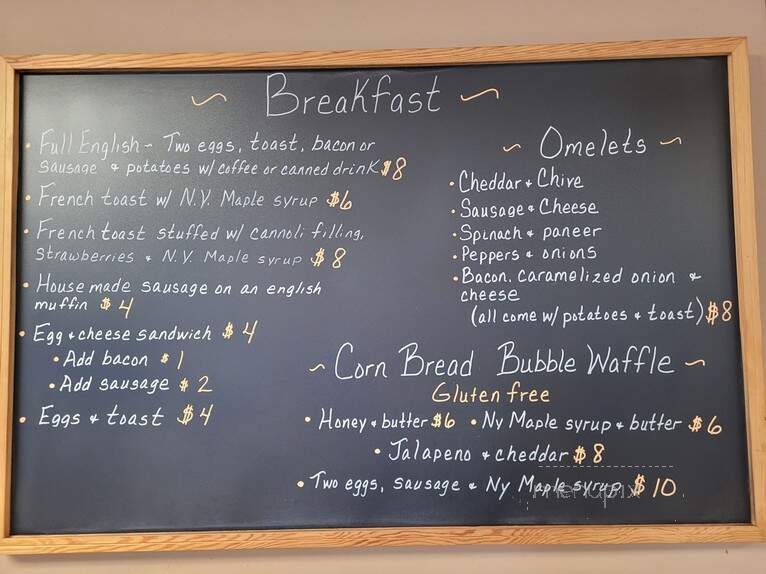 ~ Breakfast ~
• Full English - Two eggs, toast, bacon or
sausage & potatoes w/ coffee or canned drink $8
• French toast w/ N.Y. Maple syrup $6
• French toast stuffed w/ cannoli filling,
strawberries & N.Y. Maple syrup $8
• House made sausage on an english
muffin $4
• Egg & cheese sandwich $4
• Add bacon $1
• Add sausage $2
• Eggs & toast $4
~ Omelets ~
• Cheddar & Chive
• Sausage & Cheese
• Spinach & paneer
• Peppers & onions
• Bacon, caramelized onion &
cheese
(all come w/ potatoes & toast) $8
~ Corn Bread Bubble Waffle ~
Gluten free
• Honey & butter $6 • Ny Maple syrup & butter $6
• Jalapeno & cheddar $8
• Two eggs, sausage & Ny Maple syrup $10
menupix